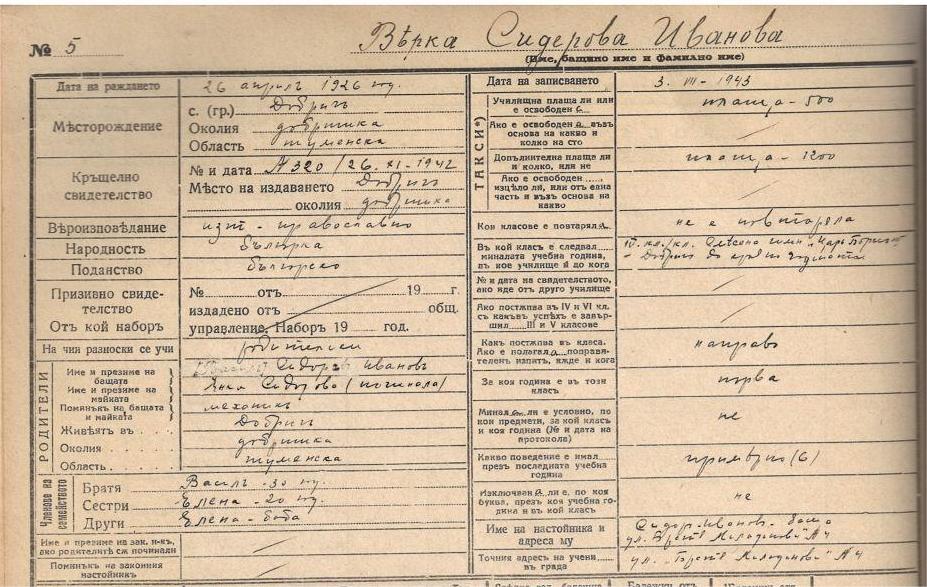 № 5 Вѣрка Сидерова Иванова
(Име, бащино име и фамилно име)
Дата на раждането 26 априлъ 1926 год.
Мѣсторождение
с. (гр.) Добричъ
Околия добричка
Область шуменска
Кръщелно свидетелство
№ и дата № 320 / 26. XI - 1942
Мѣсто на издаването Добричъ
околия добричка
Вѣроизповѣдание изт - православно
Народность българка
Поданство българско
Призивно свиде-
телство
Отъ кой наборъ
№ отъ 19 г.
издадено отъ общ.
управление, Наборъ 19 год.
На чии разноски се учи родители
РОДИТЕЛИ
Име и презиме на бащата Сидоръ Ивановъ
Име и презиме на майката Сидорова (починала)
Поминъкъ на бащата и майката механикъ
Живѣятъ въ Добричъ
Околия добричка
Область шуменска
Членове на семейството
Братя Василъ - 30 год.
Сестри Елена - 20 год.
Други Елена - баба
Име и презиме на зак. н-къ, ако родителитѣ сѫ починали
Поминъкъ на законния настойникъ
Дата на записването 3. VII - 1943
ТАКСИ*)
Училищна плаща ли или е освободен плаща - 500
Ако е освободен а възъ основа на какво и колко на сто
Допълнителна плаща ли и колко, или не плаща - 1200
Ако е освободен изцѣло ли, или отъ една часть и възъ основа на какво
Кои класове е повтарял а не е повтаряла
Въ кой класъ е следвал миналата учебна година, въ кое училище и до кога
IV. кл. Смесена гимн. "Царь Борисъ"
- Добричъ до края на годината
№ и дата на свидетелството, ако иде отъ друго училище
Ако постѫпва въ IV и VI кл. съ какъвъ успѣхъ е завършил III и V класове
Какъ постѫпва въ класа. Ако е полагал а поправителенъ изпитъ, кѫде и кога направо
За коя година е въ този класъ първа
Минал а ли е условно, по кои предмети, за кой класъ и коя година (№ и дата на протокола) не
Какво поведение е имал презъ последната учебна година примѣрно (6)
Изключван а ли е, по коя буква, презъ коя учебна година и въ кой класъ не
Име на настойника и адреса му Сидор Иванов - баща
ул. "Братя Миладинови" № 4
Точния адресъ на учени въ града ул. "Братя Миладинови" № 4